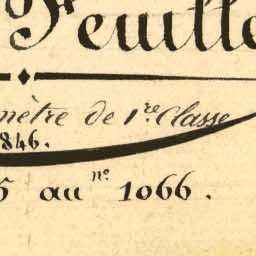 Feuille
mètre de 1re. Classe
1846.
5 au no. 1066.